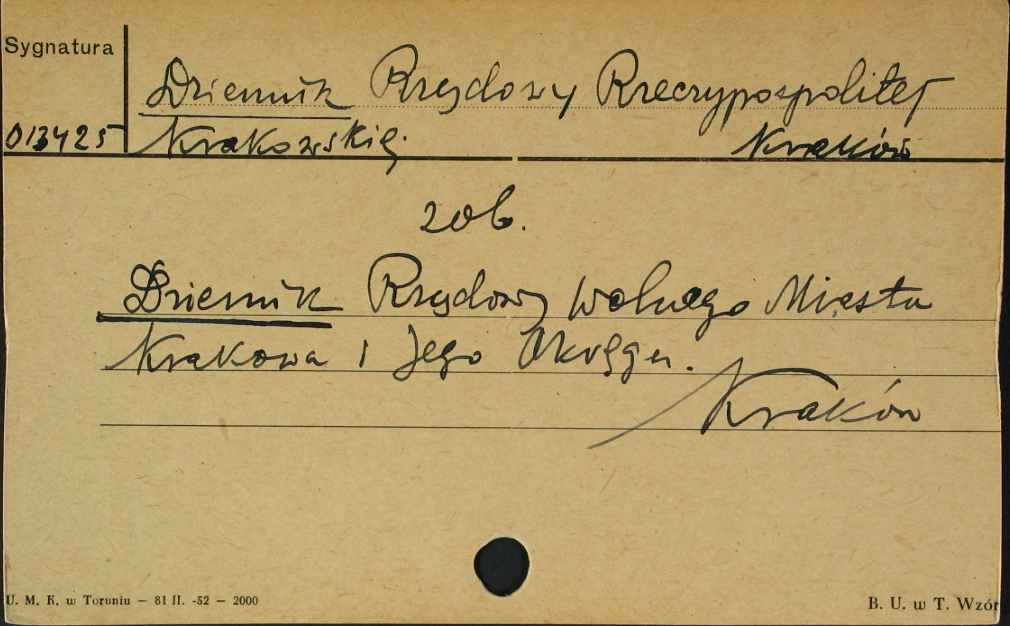 Sygnatura
Dziennik Rządowy Rzeczypospolitej
013425 Krakowskiej. Kraków
zob.
Dziennik Rządowy Wolnego Miasta
Krakowa i Jego Okręgu.
Kraków
U. M. K. w Toruniu — 81 II. -52 — 2000
B. U. w T. Wzór